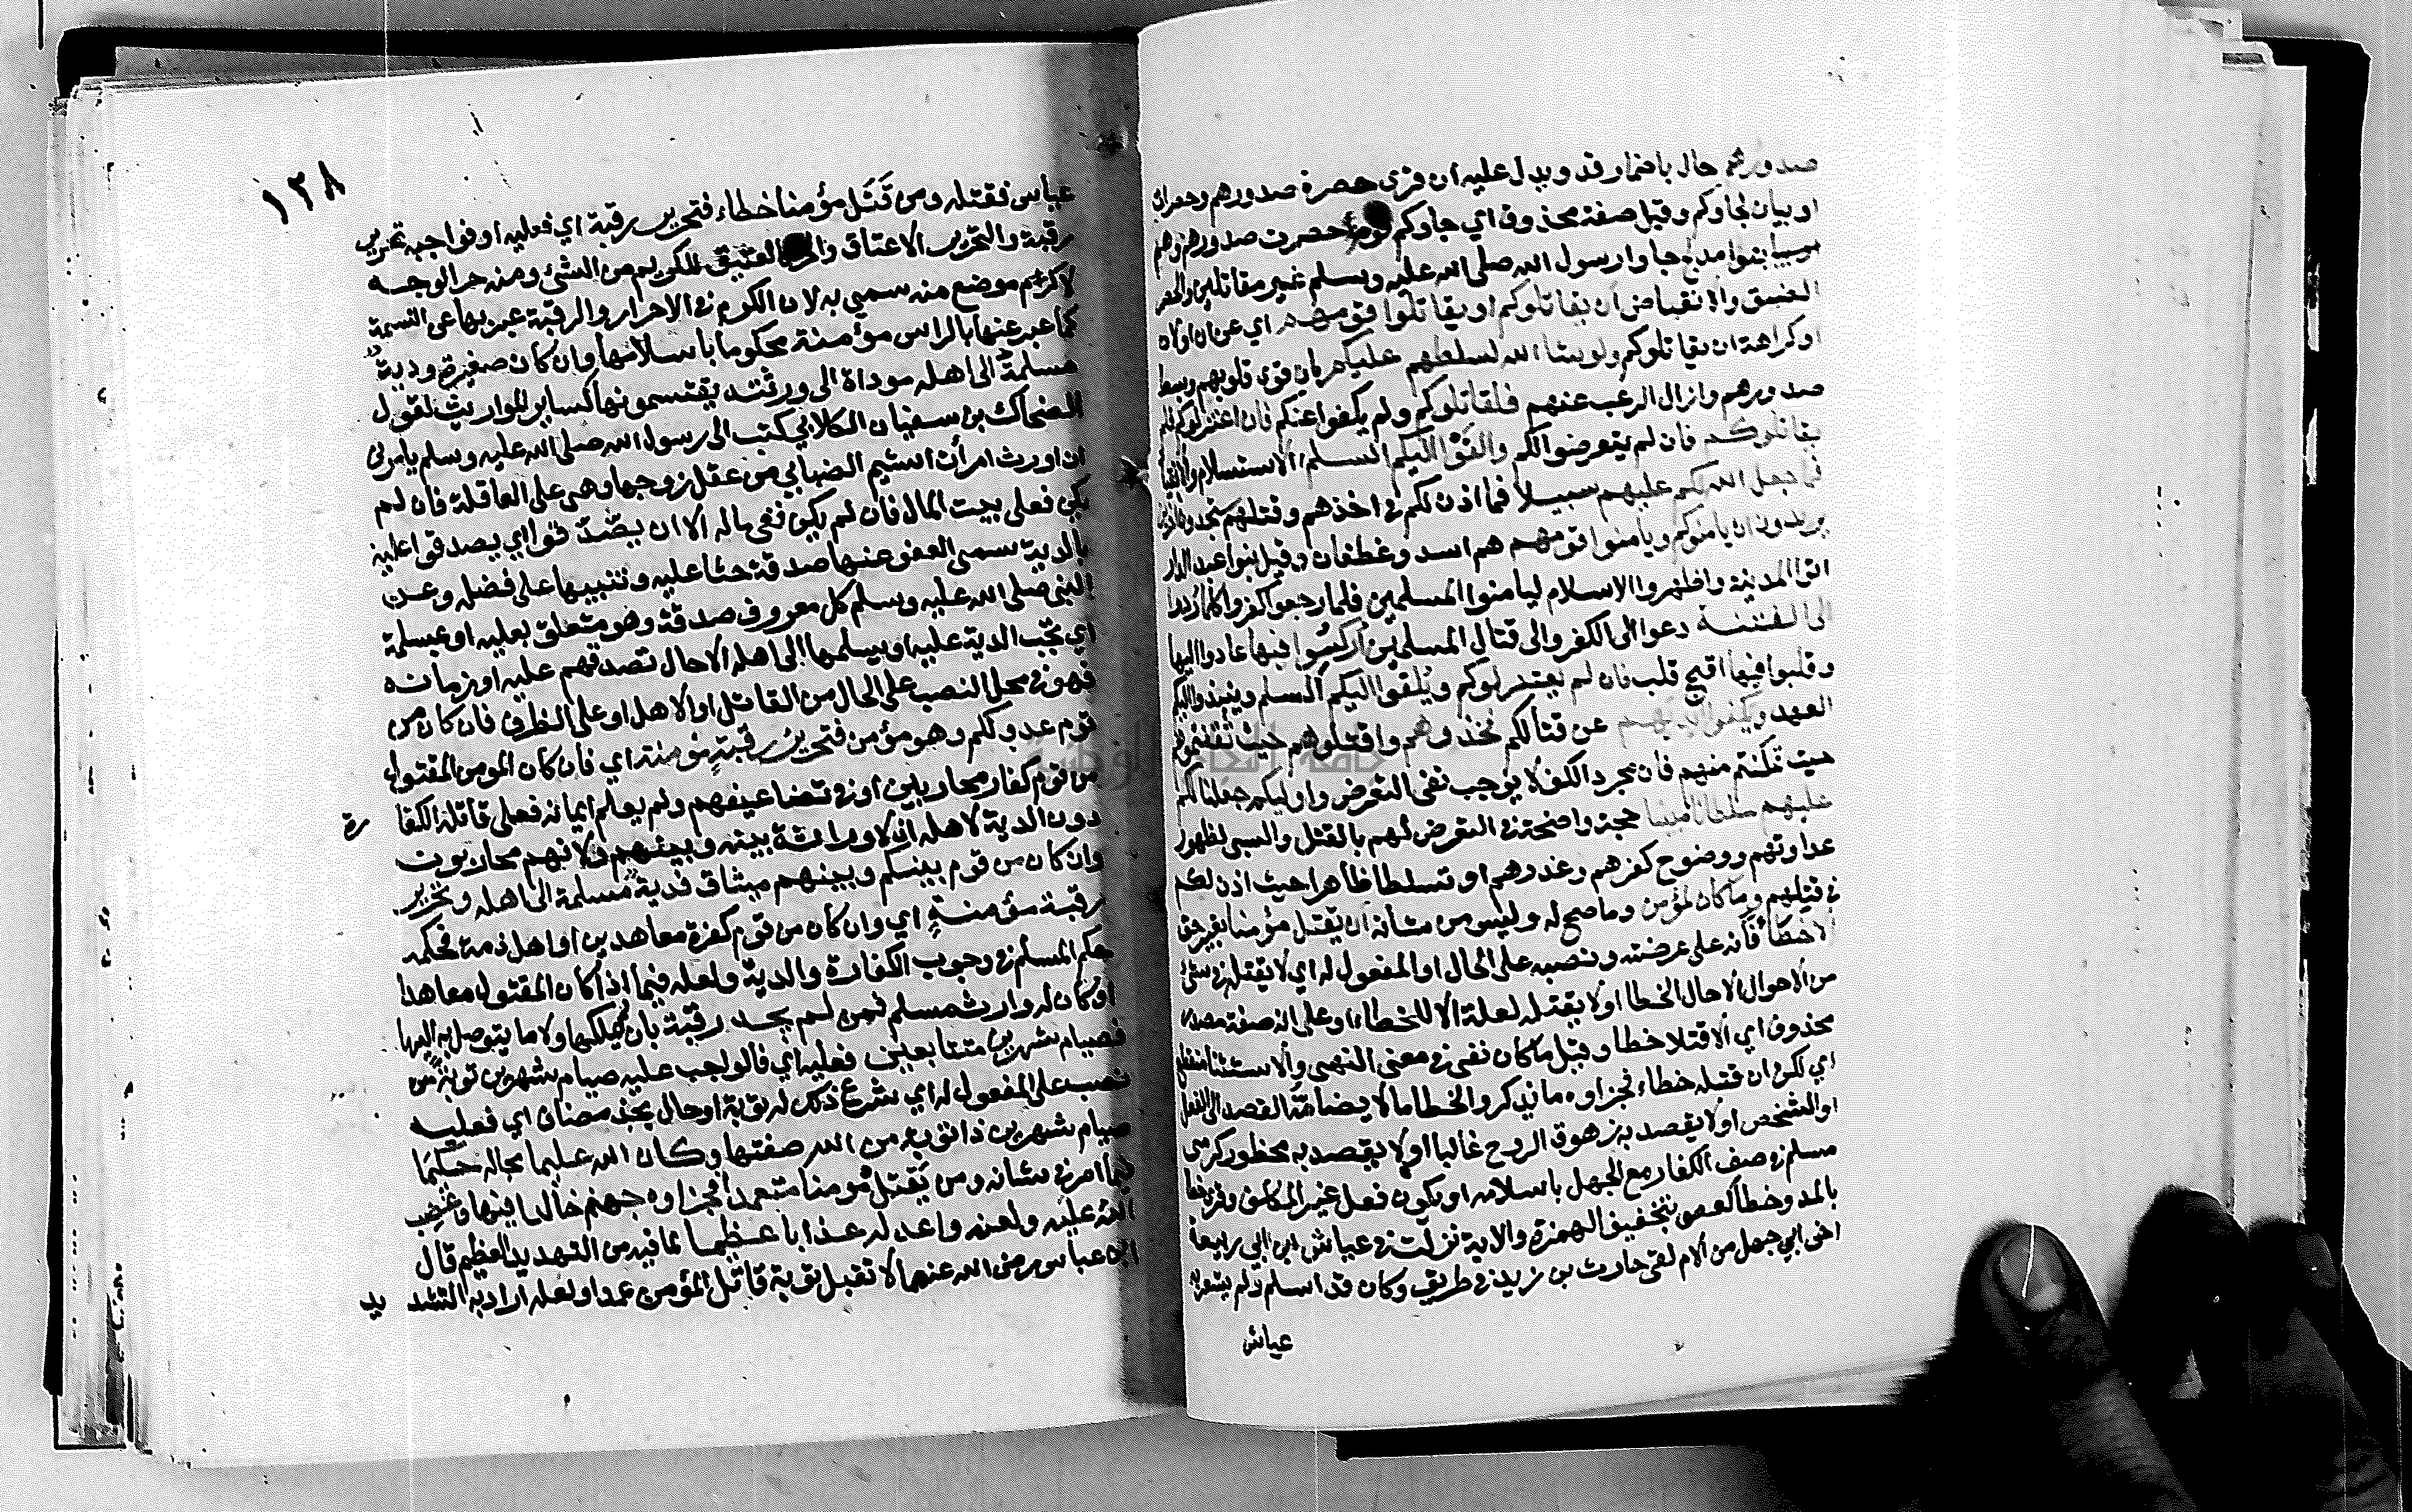 صدورهم حال باضمار قد ويدل عليه ان قرئ حصرة صدورهم وحصرات
او بيان لجاوكم وقيل صفة محذوف اي جاوكم قوما حصرت صدورهم وهم
بنوا مدلج جاوا رسول الله صلى الله عليه وسلم غير مقاتلين والحصر
الضيق والانقباض ان يقاتلوكم او يقاتلوا قومهم اي عن ان او لان
او كراهة ان يقاتلوكم ولو يشا الله لسلطهم عليكم بان قوى قلوبهم وبسط
صدورهم وازال الرعب عنهم فلقاتلوكم ولم يكفوا عنكم فان اعتزلوكم فلم
يقاتلوكم فان لم يتعرضوا لكم والقوا اليكم السلم الاستسلام والانقياد
فما جعل الله لكم عليهم سبيلا فما اذن لكم في اخذهم وقتلهم ستجدون اخرين
يريدون ان يامنوكم ويامنوا قومهم هم اسد وغطفان وقيل بنوا عبد الدار
اتوا المدينة واظهروا الاسلام ليامنوا المسلمين فلما رجعوا كفروا كلما ردوا
الى الفتنة دعوا الى الكفر والى قتال المسلمين اركسوا فيها عادوا اليها
وقلبوا فيها اقبح قلب فان لم يعتزلوكم ويلقوا اليكم السلم وينبذوا اليكم
العهد ويكفوا ايديهم عن قتالكم فخذوهم واقتلوهم حيث ثقفتموهم
حيث تمكنتم منهم فان مجرد الكف لا يوجب نفي التعرض واوليكم جعلنا لكم
عليهم سلطانا مبينا حجة واضحة في التعرض لهم بالقتل والسبي لظهور
عداوتهم ووضوح كفرهم وغدرهم او تسلطا ظاهرا حيث اذن لكم
في قتلهم وما كان لمؤمن وما صح له وليس من شانه ان يقتل مؤمنا بغير حق
الا خطأ فانه على عرضته ونصبه على الحال او المفعول له اي لا يقتله في شئ
من الاحوال الا حال الخطا او لا يقتله لعلة الا للخطاء او على انه صفة مصدر
محذوف اي الا قتلا خطا وقيل ما كان نفي في معنى النهي والاستثنا منقطع
اي لكن ان قتله خطاء فجزاوه ما يذكر والخطا ما لا يضامه القصد الى الفعل
او الشخص او لا يقصد به زهوق الروح غالبا او لا يقصد به محظور كرمى
مسلم في صف الكفار مع الجهل باسلامه او يكون فعل غير المكلف وقرئ خطا
بالمد وخطا كعصى بتخفيف الهمزة والاية نزلت في عياش ابن ابي ربيعة
اخى ابي جهل من الام لقى حارث بن زيد في طريق وكان قد اسلم ولم يشعر به
عياش
١٣٨
عياش فقتله ومن قتل مؤمنا خطاء فتحرير رقبة اي فعليه او فواجبه تحرير
رقبة والتحرير الاعتاق والحر كالعتيق للكريم من الشئ ومنه حر الوجه
لاكرم موضع منه سمي به لان الكرم في الاحرار والرقبة عبر بها عن النسمة
كما عبر عنها بالراس مؤمنة محكوما باسلامها وان كان صغيرة ودية
مسلمة الى اهله موداة الى ورثته يقتسمونها كساير المواريث لقول
الضحاك بن سفيان الكلابي كتب الى رسول الله صلى الله عليه وسلم يامرني
ان اورث امرأت اشيم الضبابي من عقل زوجها وهي على العاقلة فان لم
يكن فعلى بيت المال فان لم يكن ففي ماله الا ان يصدقوا اي يصدقوا عليه
بالدية سمى العفو عنها صدقة حثا عليه وتنبيها على فضله وعن
النبي صلى الله عليه وسلم كل معروف صدقة وهو متعلق بعليه او بمسلمة
اي تجب الدية عليه او يسلمها الى اهله الا حال تصدقهم عليه او زمانه
فهو في محل النصب على الحال من القاتل او الاهل او على الظرف فان كان من
قوم عدو لكم وهو مؤمن فتحرير رقبة مؤمنة اي فان كان المومن المقتول
من قوم كفار محاربين او في تضاعيفهم ولم يعلم ايمانه فعلى قاتله الكفا
رة
دون الدية لاهله اذ لا وراثة بينه وبينهم ولانهم محاربون
وان كان من قوم بينكم وبينهم ميثاق فدية مسلمة الى اهله وتحرير
رقبة مؤمنة اي وان كان من قوم كفرة معاهدين او اهل ذمة فحكمه
حكم المسلم في وجوب الكفارة والدية ولعله فيما اذا كان المقتول معاهدا
او كان له وارث مسلم فمن لم يجد رقبة بان لم يملكها ولا ما يتوصل به اليها
فصيام شهرين متتابعين فعليه اي فالواجب عليه صيام شهرين توبة من
نصب على المفعول له اي شرع ذلك له توبة او حال بحذف مضاف اي فعليه
صيام شهرين ذا توبة من الله صفتها وكان الله عليما بحاله حكيما
فيما امر في شانه ومن يقتل مؤمنا متعمدا فجزاوه جهنم خالدا فيها وغضب
الله عليه ولعنه واعد له عذابا عظيما لما فيه من التهديد العظيم قال
ابن عباس رضى الله عنهما لا تقبل توبة قاتل المؤمن عمدا ولعله اراد به التشد
يد